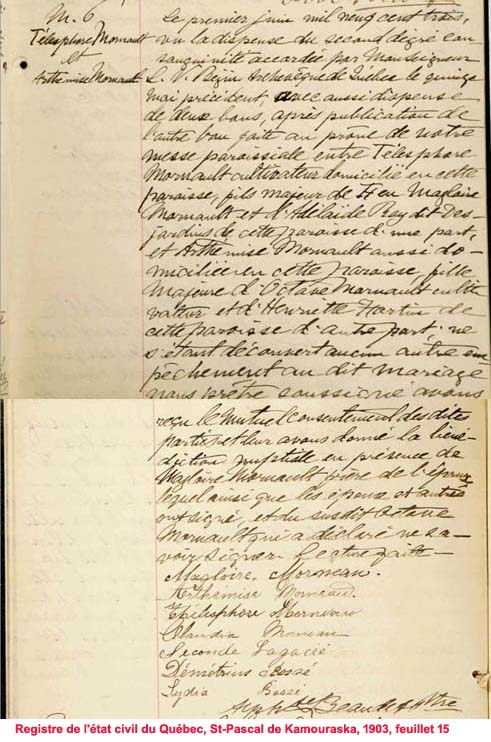 M. 6
Télesphore Mornault
et
Arthémise Mornault
Le premier juin mil neuf cent trois,
vu la dispense du second dégré con-
sanguinité accordée par Monseigneur
L. N. Bégin Archevêque de Québec le quinze
mai précédent, avec aussi dispense
de deux bans, après publication de
l'autre ban faite au prone de notre
messe paroissiale entre Télesphore
Mornault cultivateur domicilié en cette
paroisse, fils majeur de Feu Magloire
Mornault et d'Adélaïde Roy dit Des-
jardins de cette paroisse d'une part,
et Arthémise Mornault aussi do-
miciliée en cette paroisse, fille
Majeure d'Octave Mornault culti-
vateur et d'Henriette Fortin de
cette paroisse d'autre part; ne
s'étant découvert aucun autre em-
pêchement au dit mariage
nous prêtre soussigné avons
reçu le Mutuel consentement des dites
parties et leur avons donné la béné-
diction nuptiale en présence de
Magloire Mornault, frère de l'époux
lequel ainsi que les époux et autres
ont signé, et du susdit Octave
Mornault qui a déclaré ne sa-
voir signer. Lecture faite—
Magloire Morneau.
Arthémise Morneau
Thélesphore Morneau
Claudia Morneau
Seconde Lagacée
Démétrius Bossé
Lydia Bossé
Alph. Beaudet Ptre
Registre de l'état civil du Québec, St-Pascal de Kamouraska, 1903, feuillet 15